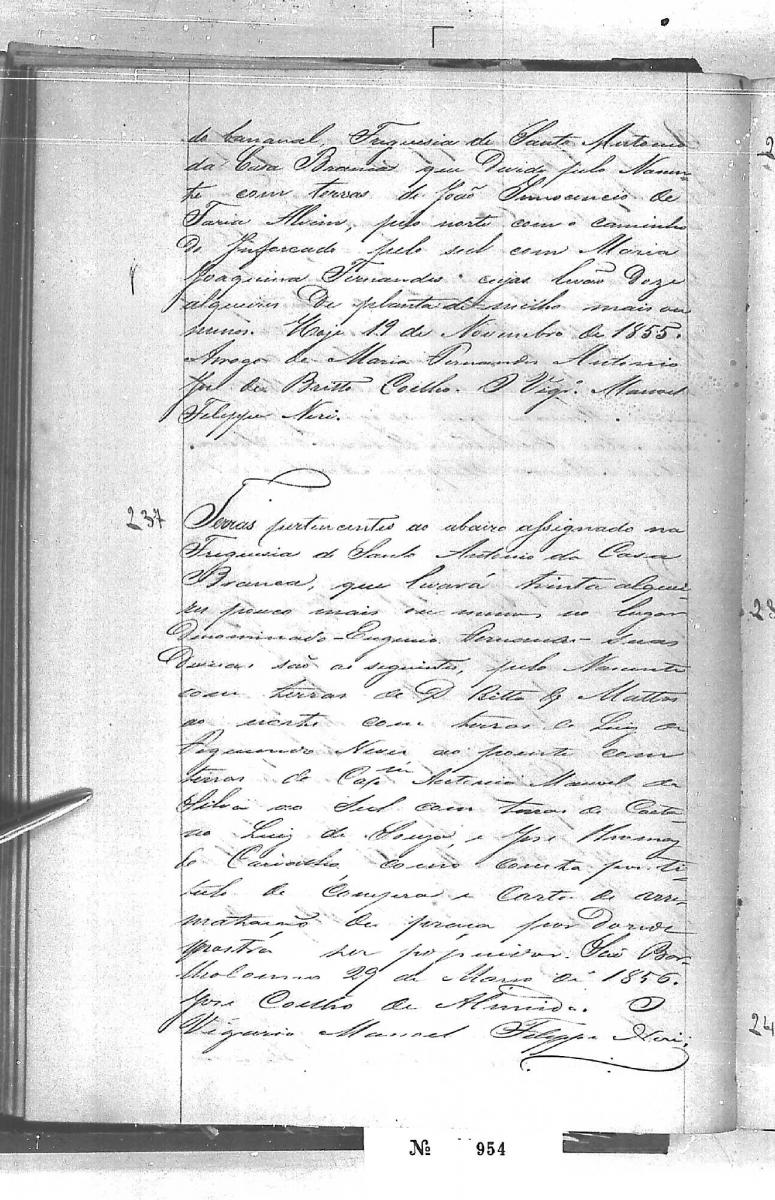 do Cananal, Friguesia de Santo Antonio
da Casa Branca que devide pelo Nascen-
te com terras de João Innocencio de
Faria Alvim, pelo norte com o caminho
do Inforcado pelo sul com Maria
Joaquina Fernandes cujas levão doze
alqueires de planta de milho mais ou
menos. Hoje 19 de Novembro de 1855.
Arrogo de Maria Fernandes Antonio
José de Britto Coelho. O Vigº. Manoel
Felippe Neri.
237
Terras pertencentes ao abaixo assignado na
Friguesia de Santo Antonio da Casa
Branca, que levará trinta alquei-
res pouco mais ou menos no lugar
denominado - Eugenio - suas
são as seguintes, pelo Nascente
com terras de D Ritta de Mattos
ao norte com terras de Luiz de
Neves ao poente com
terras do Capm Antonio Manoel da
Silva ao Sul com terras de Caeta-
no Luiz de Souza, e José
de Carvalho como consta por ti-
tulo de compra e Carta de arre-
matação de praça por donde
mostra ser possuidor. São Bar-
tholomeu 29 de Março de 1856.
José Coelho de Almeida. O
Vigario Manoel Felippe Neri.
23
24
Nº 954